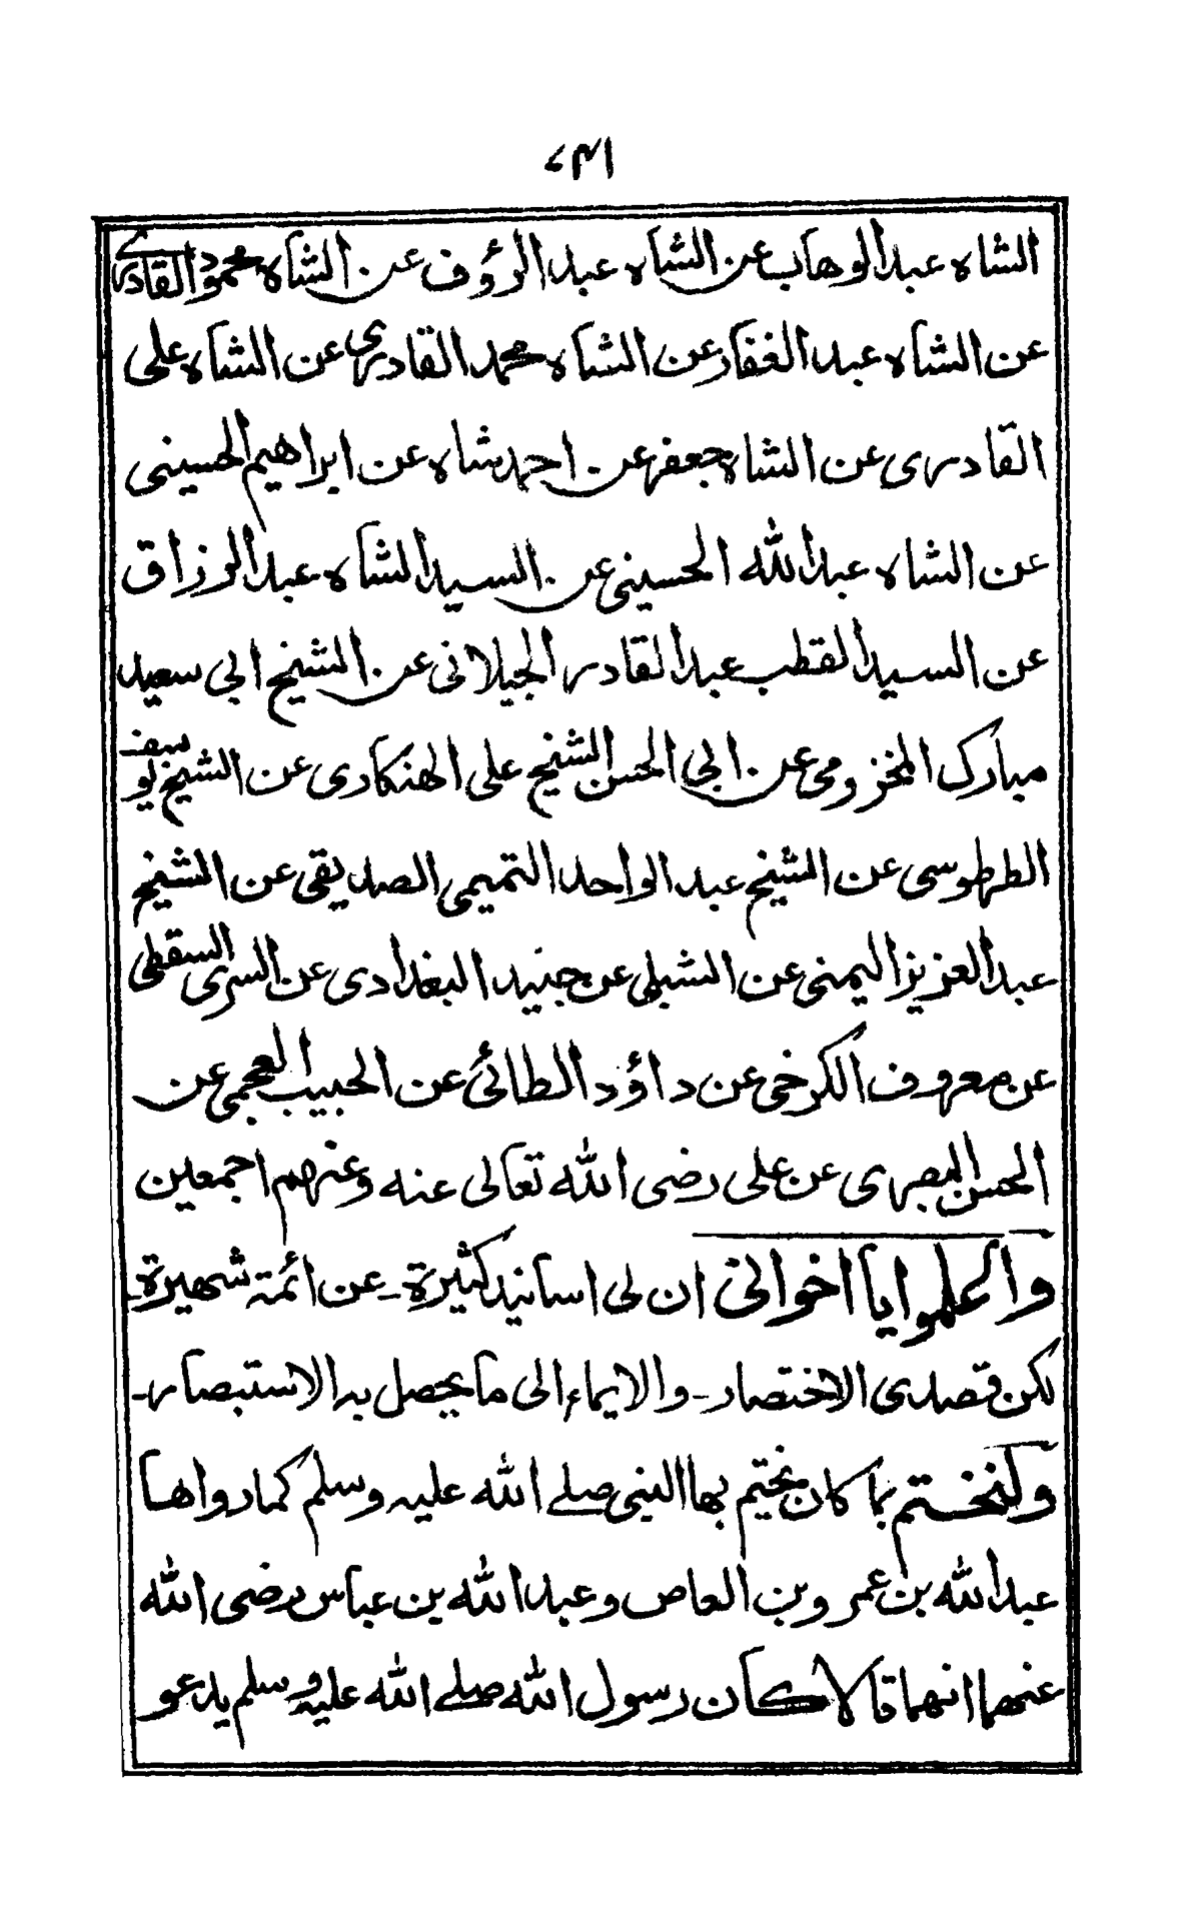 ١٣٧
الشاه عبد الوهاب عن الشاه عبد الرؤف عن الشاه محمود القادرى
عن الشاه عبد الغفار عن الشاه محمد القادرى عن الشاه على
القادرى عن الشاه جعفر عن احمد شاه عن ابراهيم الحسينى
عن الشاه عبد الله الحسينى عن السيد الشاه عبد الرزاق
عن السيد القطب عبد القادر الجيلانى عن الشيخ ابى سعيد
مبارك المخزومى عن ابى الحسن الشيخ على الهنكارى عن الشيخ يوسف
الطرطوسى عن الشيخ عبد الواحد التميمى الصديقى عن الشيخ
عبد العزيز اليمنى عن الشبلى عن جنيد البغدادى عن السرى السقطى
عن معروف الكرخى عن داؤد الطائى عن الحبيب العجمى عن
الحسن البصرى عن على رضى الله تعالى عنه وعنهم اجمعين
واعلموا يا اخوانى ان لى اسانيد كثيرة - عن ائمة شهيرة -
لكن قصدى الاختصار - والايماء الى ما يحصل به الاستبصار -
ولنختم بما كان يختم بها النبى صلے الله عليه وسلم كما رواها
عبد الله بن عمر وبن العاص وعبد الله بن عباس رضى الله
عنهما انهما قالا كان رسول الله صلے الله عليه وسلم يدعو